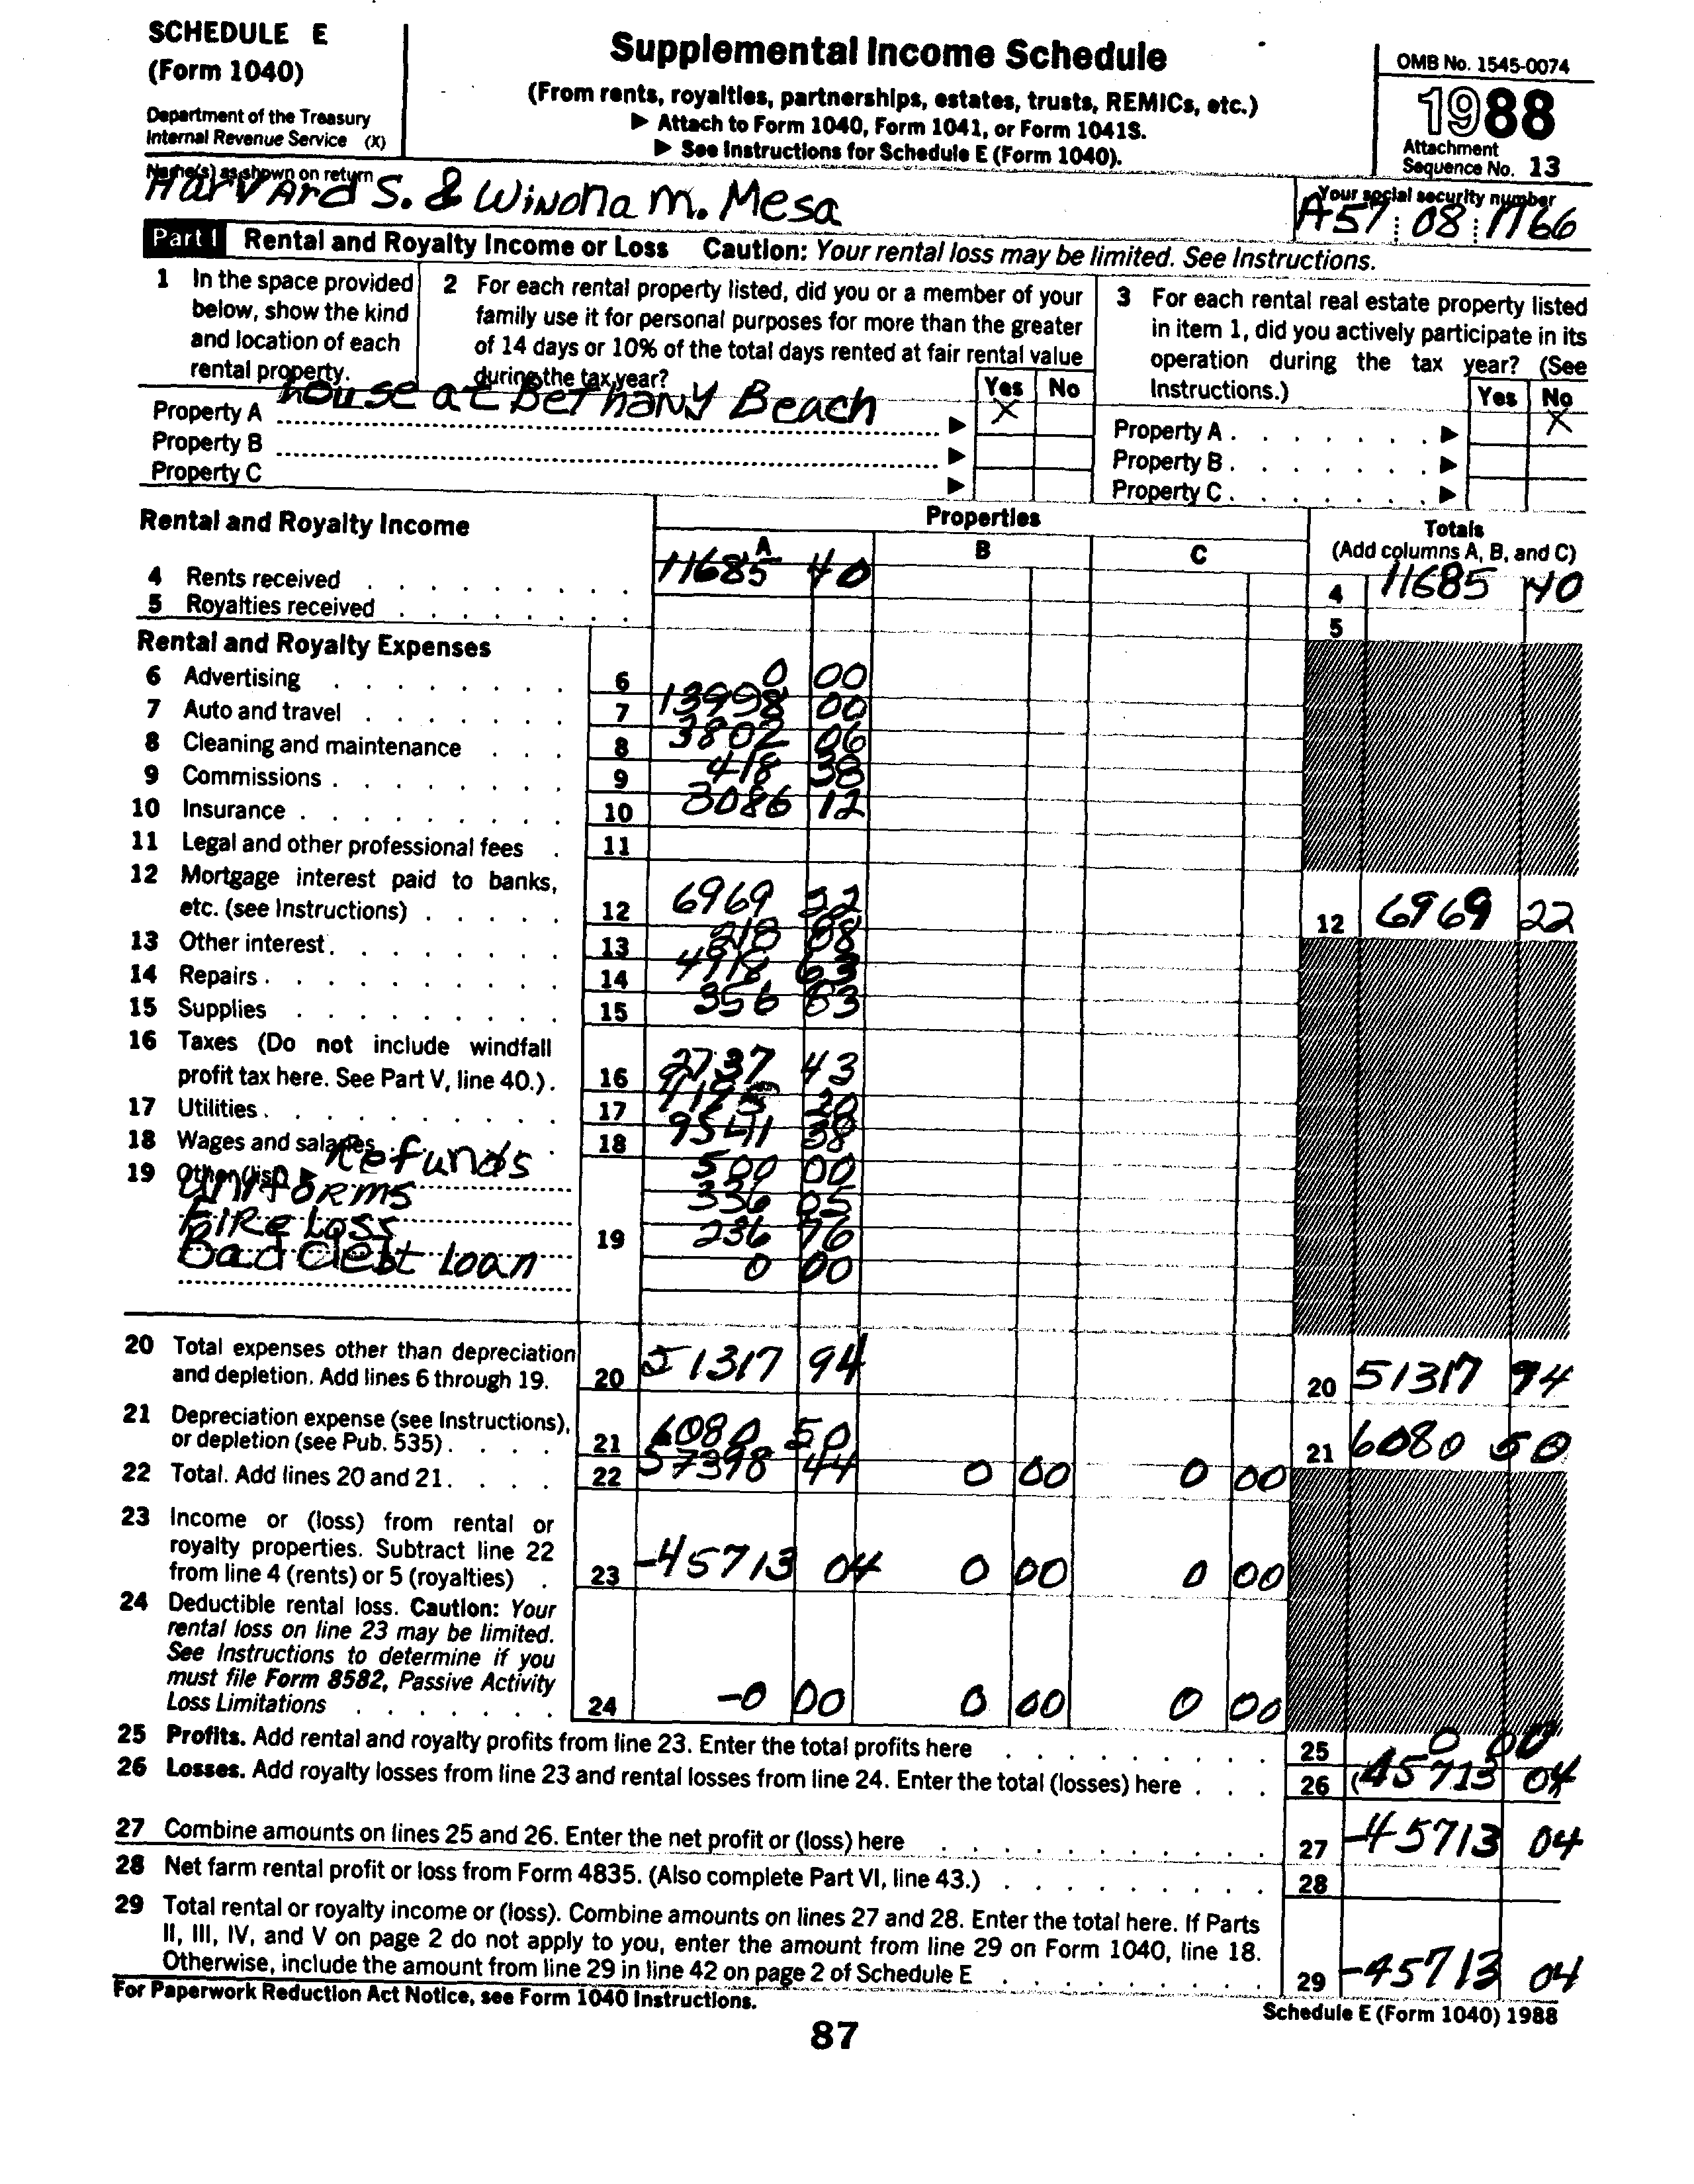 SCHEDULE E
(Form 1040)
Department of the Treasury
Internal Revenue Service (X)
Supplemental Income Schedule
(From rents, royalties, partnerships, estates, trusts, REMICs, etc.)
▶ Attach to Form 1040, Form 1041, or Form 1041S.
▶ See Instructions for Schedule E (Form 1040).
OMB No. 1545-0074
1988
Attachment
Sequence No. 13
Name(s) as shown on return
Harvard S. & Winona M. Mesa
Your social security number
A57 08 1166
Part I Rental and Royalty Income or Loss Caution: Your rental loss may be limited. See Instructions.
1 In the space provided below, show the kind and location of each rental property.
2 For each rental property listed, did you or a member of your family use it for personal purposes for more than the greater of 14 days or 10% of the total days rented at fair rental value during the tax year?
3 For each rental real estate property listed in item 1, did you actively participate in its operation during the tax year? (See Instructions.)
Yes No
Yes No
Property A house at Bethany Beach ▶ X
Property B ▶
Property C ▶
Property A . ▶ X
Property B . ▶
Property C . ▶
Rental and Royalty Income
Properties
A B C
Totals
(Add columns A, B, and C)
4 Rents received 11685 40 4 11685 40
5 Royalties received 5
Rental and Royalty Expenses
6 Advertising 6 0 00
7 Auto and travel 7 13998 00
8 Cleaning and maintenance 8 3802 06
9 Commissions . 9 418 38
10 Insurance . 10 3086 12
11 Legal and other professional fees . 11
12 Mortgage interest paid to banks, etc. (see Instructions) 12 6969 22 12 6969 22
13 Other interest . 13 218 08
14 Repairs . 14 63
15 Supplies 15 356 83
16 Taxes (Do not include windfall profit tax here. See Part V, line 40.) . 16 2737 43
17 Utilities . 17 20
18 Wages and salaries 18 9541 38
19 Other (list) ▶ Refunds 500 00
Uniforms 336 05
Fire Loss 19 236 76
Bad debt Loan 0 00
20 Total expenses other than depreciation and depletion. Add lines 6 through 19. 20 51317 94 20 51317 94
21 Depreciation expense (see Instructions), or depletion (see Pub. 535) . 21 6080 50 21 6080 50
22 Total. Add lines 20 and 21 . 22 57398 44 0 00 0 00
23 Income or (loss) from rental or royalty properties. Subtract line 22 from line 4 (rents) or 5 (royalties) . 23 -45713 04 0 00 0 00
24 Deductible rental loss. Caution: Your rental loss on line 23 may be limited. See Instructions to determine if you must file Form 8582, Passive Activity Loss Limitations 24 -0 00 0 00 0 00
25 Profits. Add rental and royalty profits from line 23. Enter the total profits here 25 0 00
26 Losses. Add royalty losses from line 23 and rental losses from line 24. Enter the total (losses) here . 26 (45713 04
27 Combine amounts on lines 25 and 26. Enter the net profit or (loss) here 27 -45713 04
28 Net farm rental profit or loss from Form 4835. (Also complete Part VI, line 43.) 28
29 Total rental or royalty income or (loss). Combine amounts on lines 27 and 28. Enter the total here. If Parts II, III, IV, and V on page 2 do not apply to you, enter the amount from line 29 on Form 1040, line 18. Otherwise, include the amount from line 29 in line 42 on page 2 of Schedule E 29 -45713 04
For Paperwork Reduction Act Notice, see Form 1040 Instructions.
Schedule E (Form 1040) 1988
87